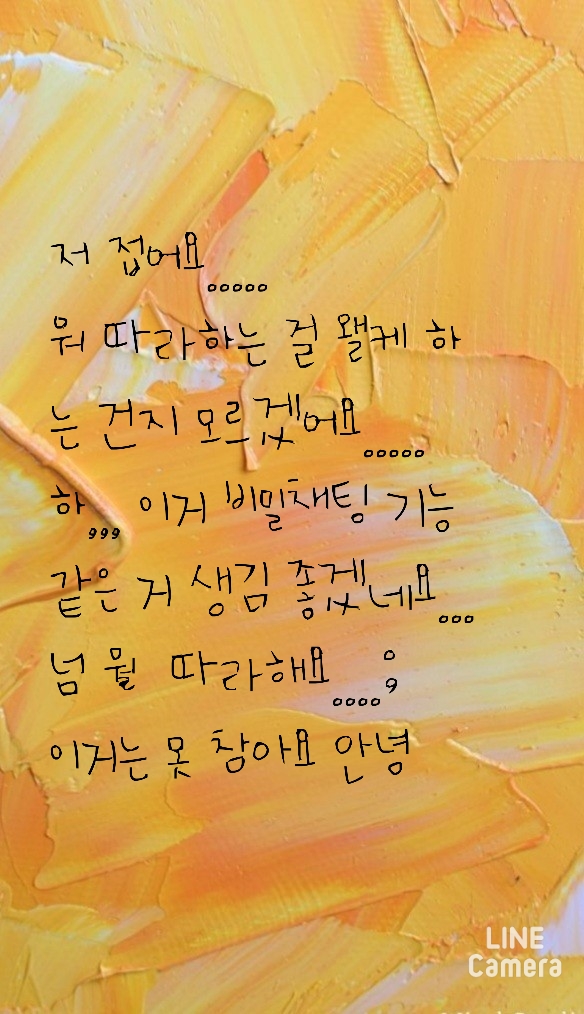 저 접어요.....
뭐 따라하는 걸 왤케 하
는 건지 모르겠어요.....
하,,, 이거 비밀채팅 기능
같은 거 생김 좋겠네요...
넘 뭘 따라해요....;
이거는 못 참아요 안녕
LINE
Camera